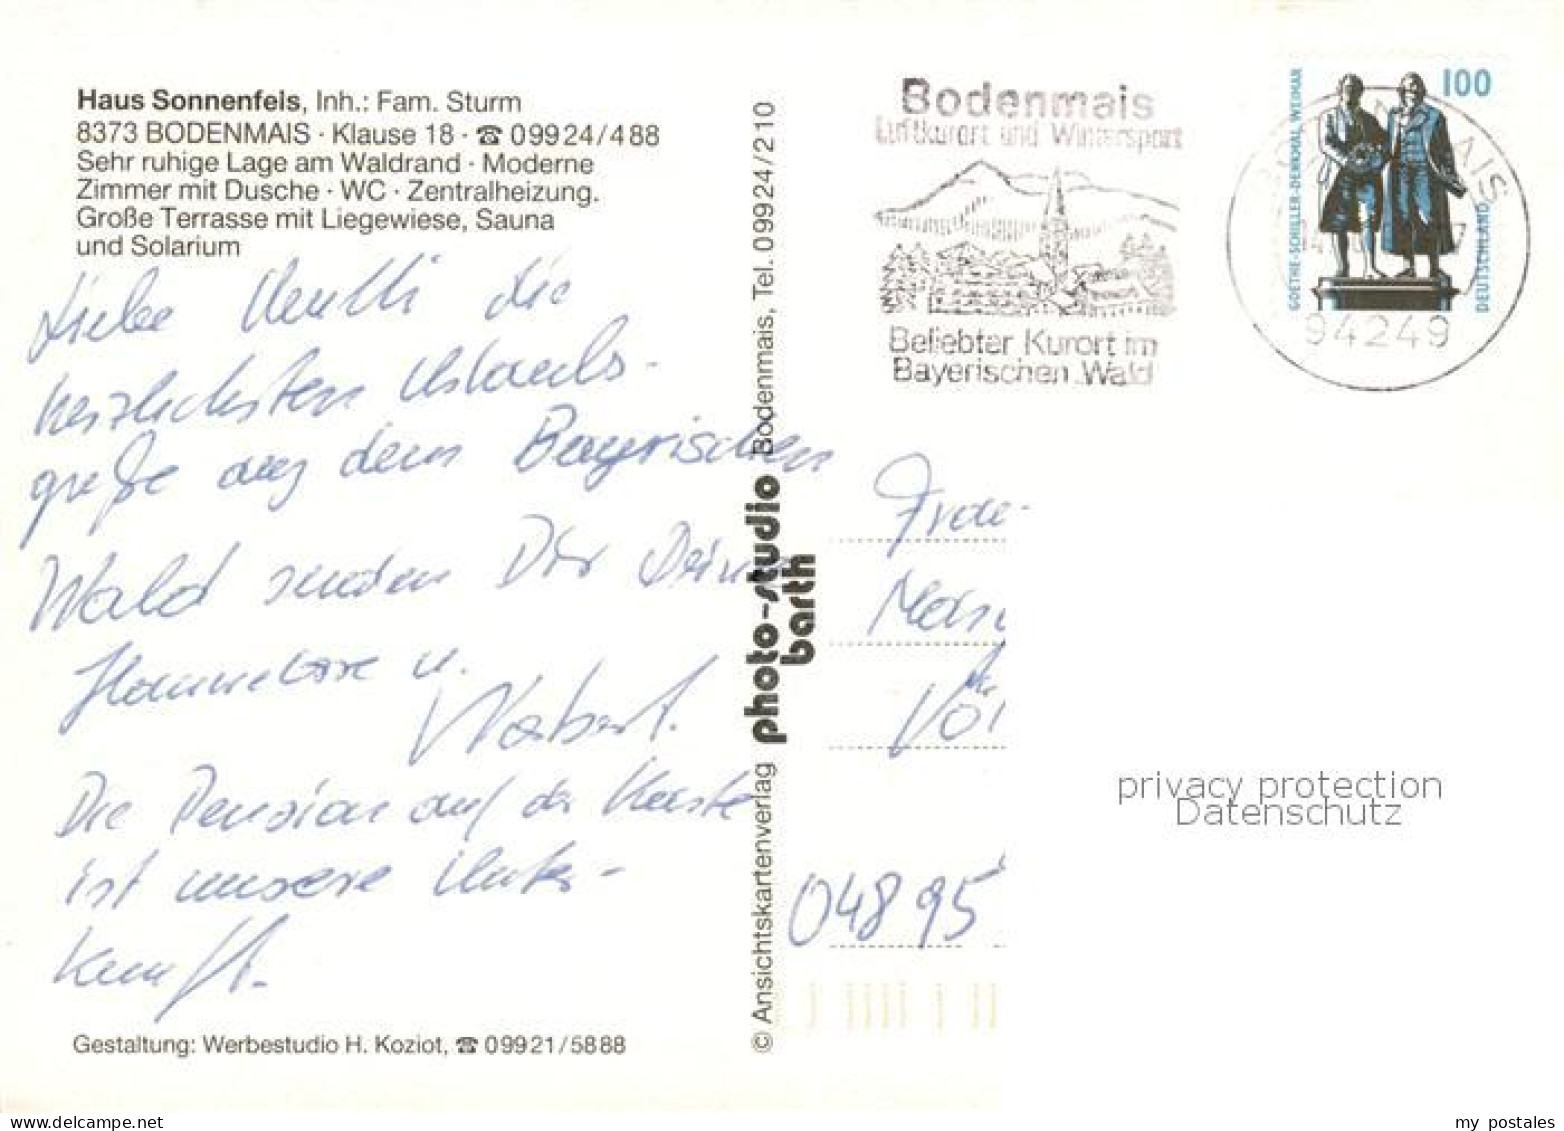 Haus Sonnenfels, Inh.: Fam. Sturm
8373 BODENMAIS · Klause 18 · ☎ 09924/488
Sehr ruhige Lage am Waldrand · Moderne
Zimmer mit Dusche · WC · Zentralheizung.
Große Terrasse mit Liegewiese, Sauna
und Solarium
Liebe die
herzlichsten Urlaubs-
grüße aus dem Bayerischen
Wald senden Dir Deine
Hannelore u.
Norbert.
Die Pension auf der Karte
ist unsere Unter-
kunft.
Gestaltung: Werbestudio H. Koziot, ☎ 09921/5888
© Ansichtskartenverlag photo-studio barth Bodenmais, Tel. 09924/210
Bodenmais
Luftkurort und Wintersport
Beliebter Kurort im
Bayerischen Wald
100
GOETHE-SCHILLER-DENKMAL WEIMAR
DEUTSCHLAND
94249
04895
privacy protection
Datenschutz
delcampe.net
my_postales